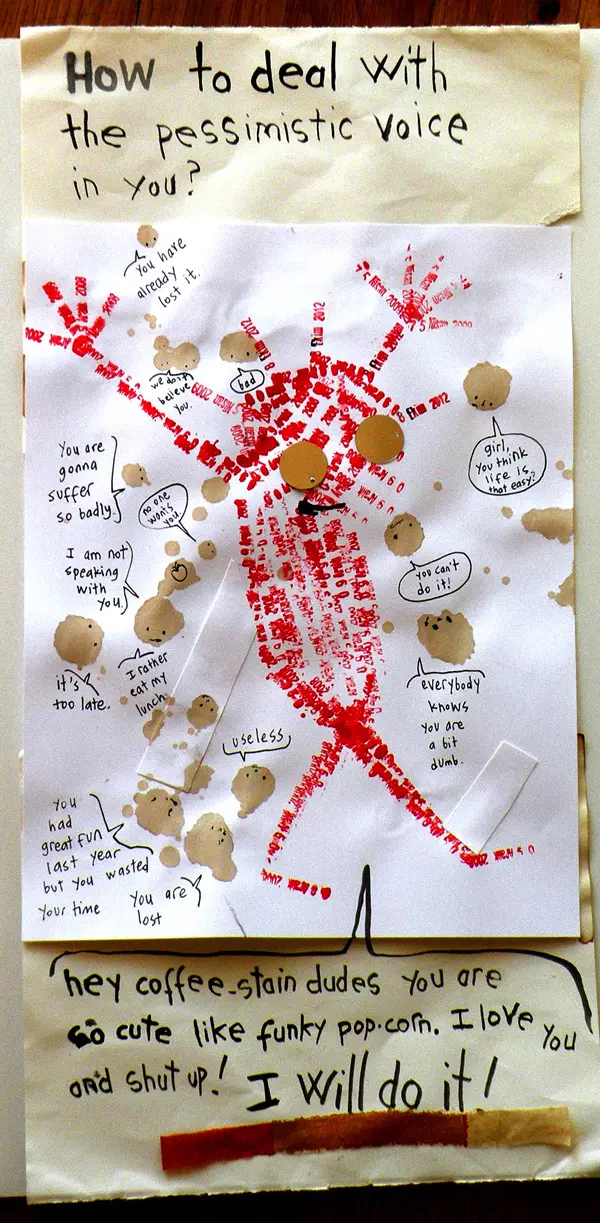 How to deal with
the pessimistic voice
in you?
You have
already
lost it.
we don't
believe
you.
bad
8 Ekim 2012
Ekim 2012
8 Ekim 2012
5 Nisan 2009
girl,
you think
life is
that easy?
You are
gonna
suffer
so badly.
no one
wants
you.
I am not
speaking
with
you.
you can't
do it!
it's
too late.
I rather
eat my
lunch.
everybody
knows
you are
a bit
dumb.
useless
You
had
great fun
last year
but you wasted
your time
You are
lost
hey coffee-stain dudes you are
so cute like funky pop-corn. I love you
and shut up! I will do it!